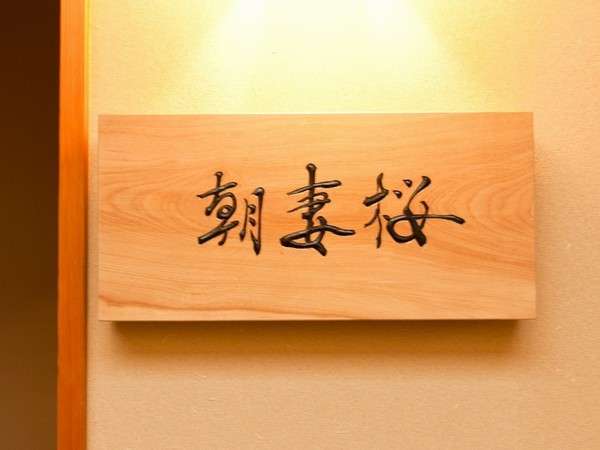 朝妻桜